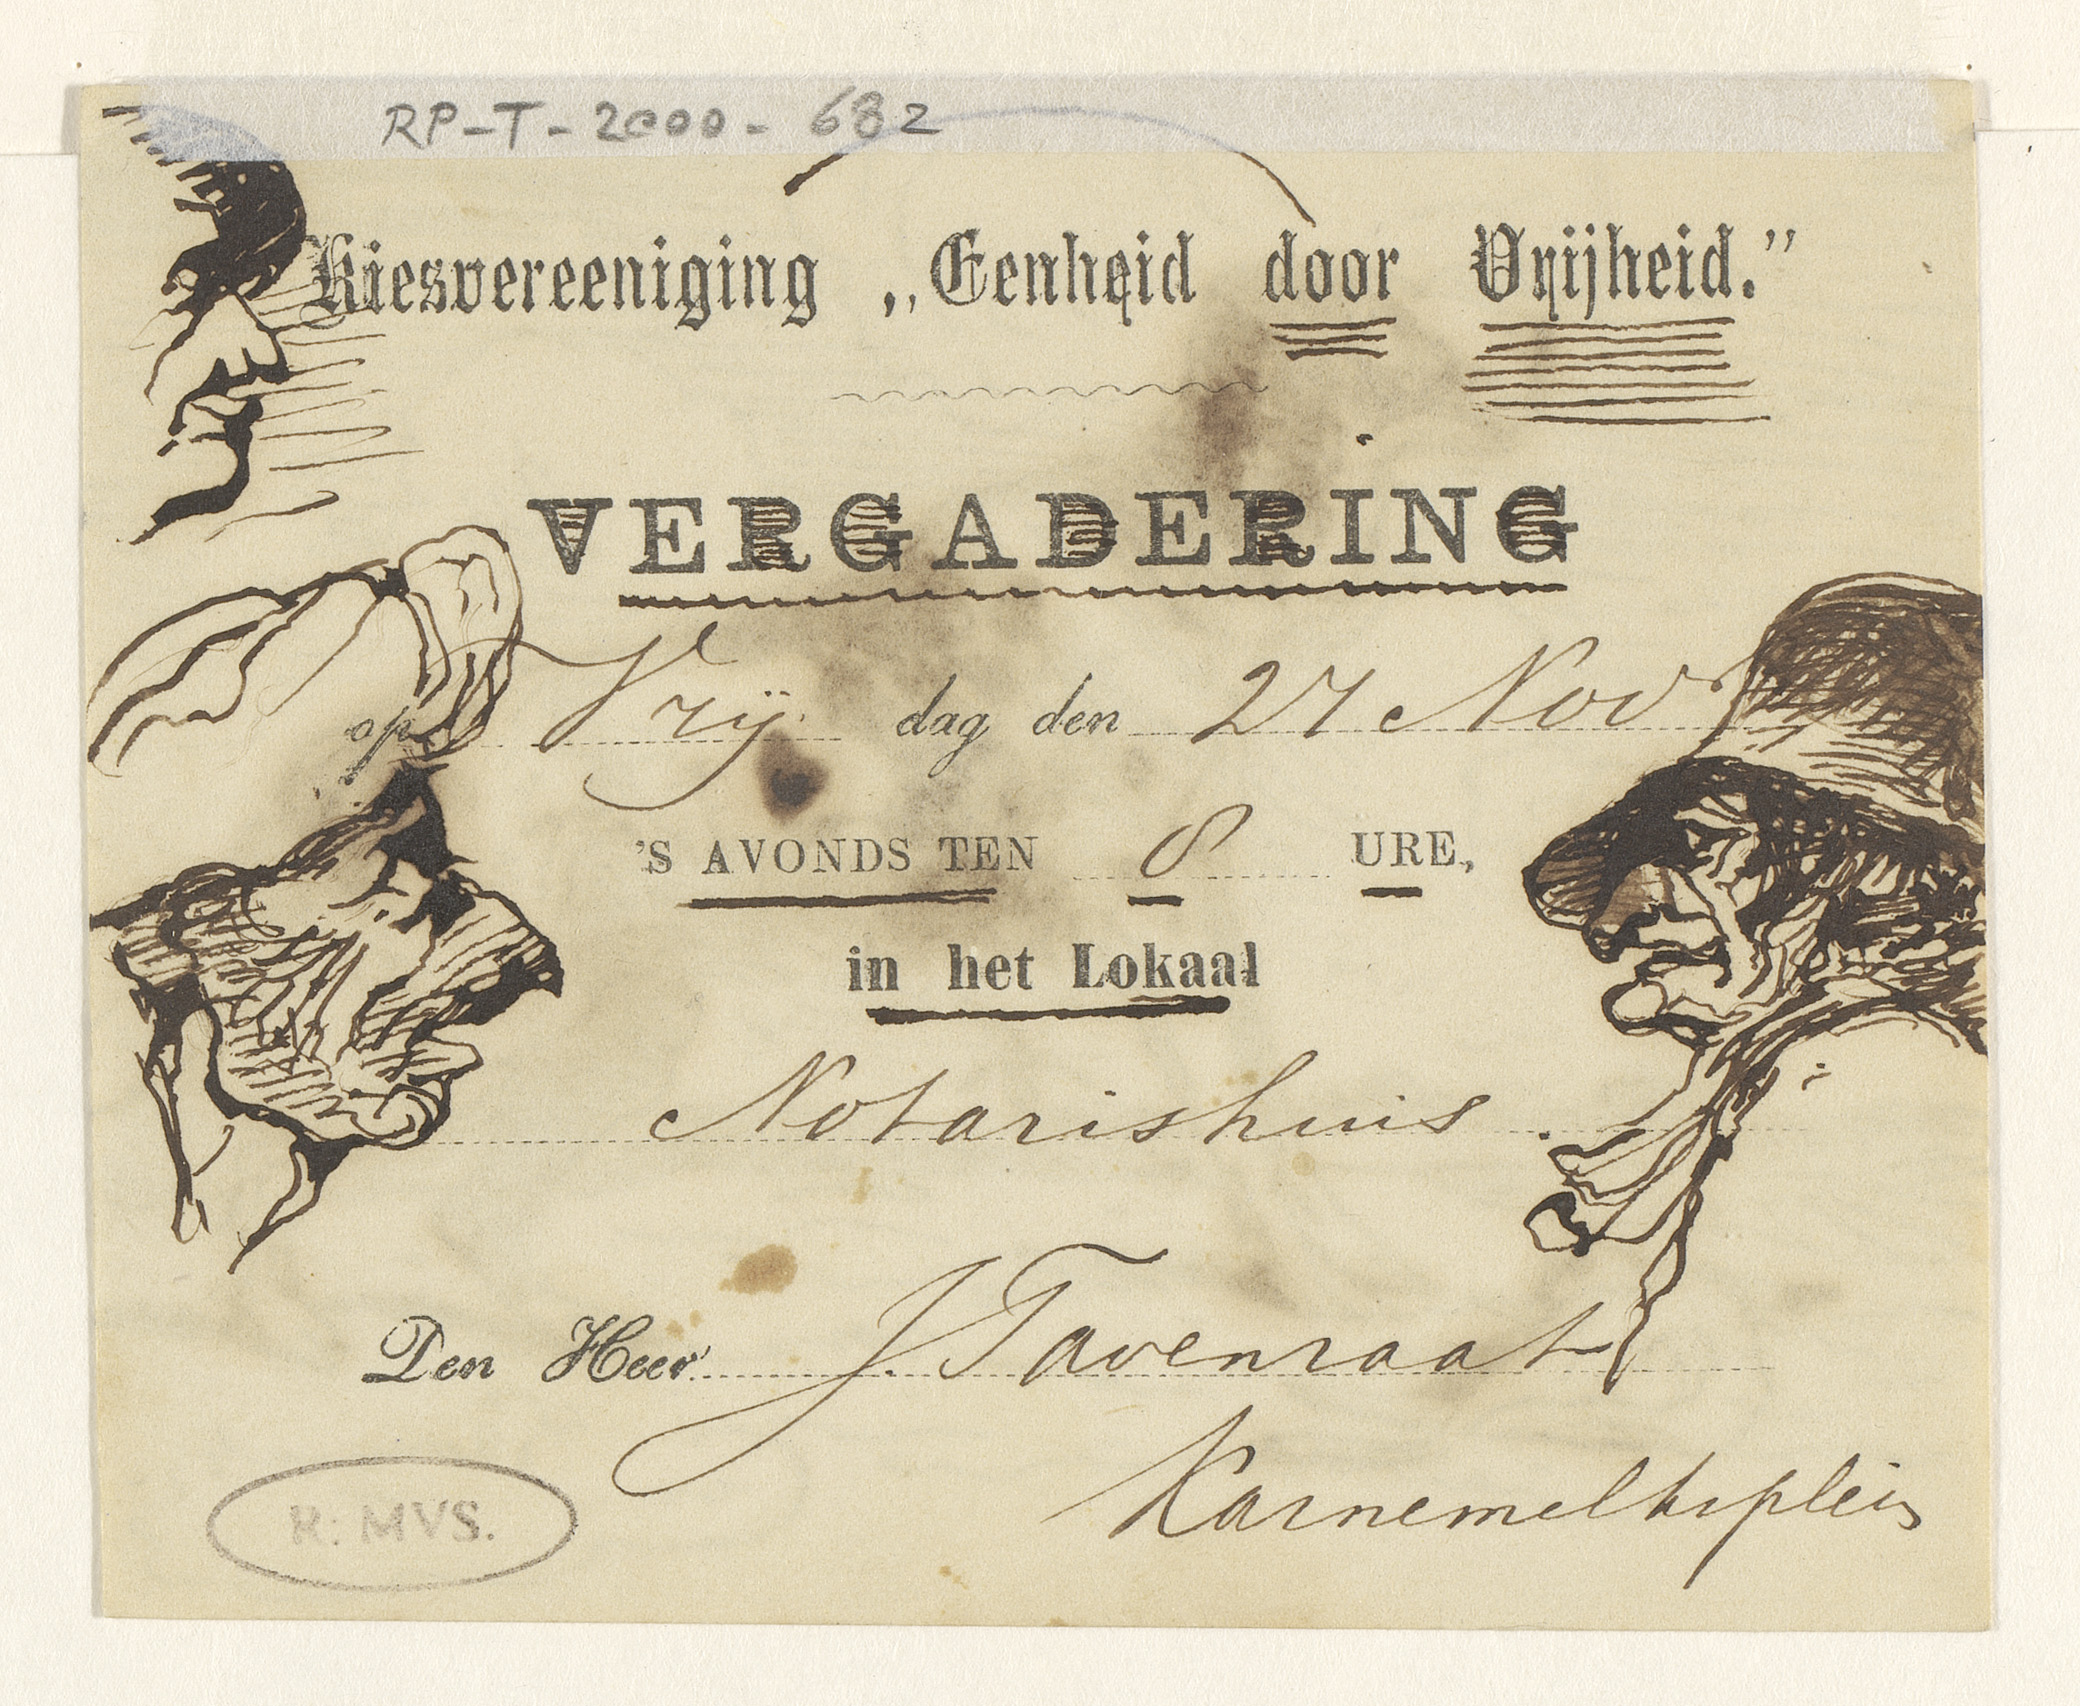 RP-T-2000-682
Kiesvereeniging „Eenheid door Vrijheid.”
VERGADERING
op Vrij dag den 27 Nov
'S AVONDS TEN 8 URE,
in het Lokaal
Notarishuis.
Den Heer J. Tavenraat
Karnemelksplein
R: MVS.